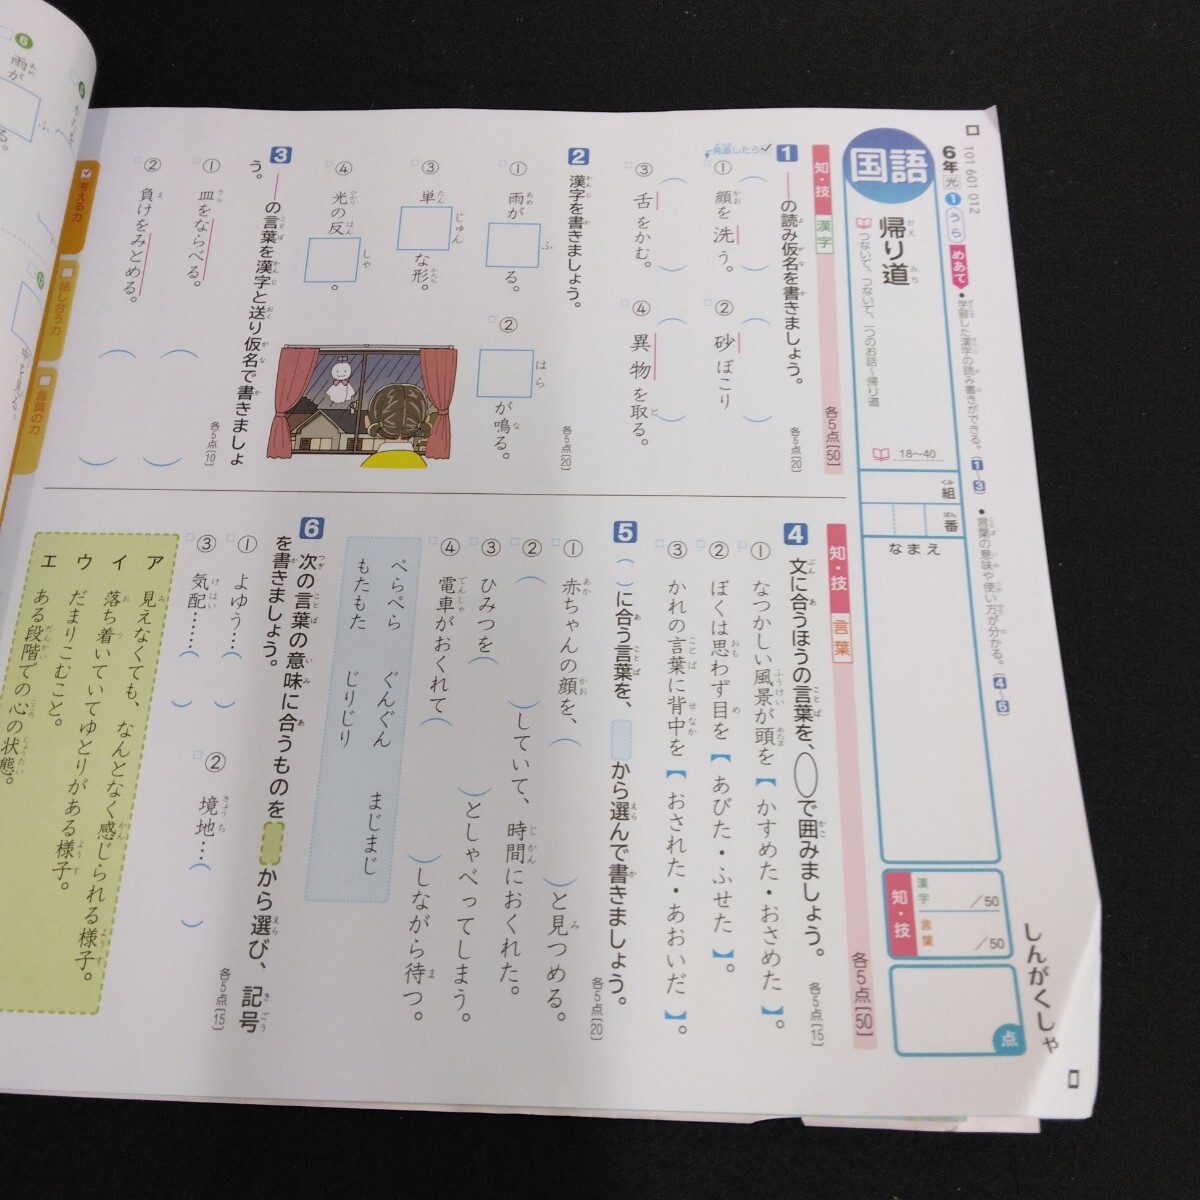 101 601 012
6年 光 1 うら
めあて
●学習した漢字の読み書きができる。(1~3)
●言葉の意味や使い方が分かる。(4~6)
国語
帰り道
つないで、つないで、一つのお話~帰り道
18~40
組
番
なまえ
知・技
漢字 /50
言葉 /50
点
しんがくしゃ
知・技 漢字 各5点[50]
見直したら✓
1 ――の読み仮名を書きましょう。 各5点[20]
① 顔を洗う。
② 砂ぼこり
③ 舌をかむ。
④ 異物を取る。
2 漢字を書きましょう。 各5点[20]
① 雨が□る。 ふ
② □が鳴る。 はら
③ 単□な形。 じゅん
④ 光の反□。 しゃ
3 ――の言葉を漢字と送り仮名で書きましょう。 各5点[10]
① 皿をならべる。
② 負けをみとめる。
知・技 言葉 各5点[50]
4 文に合うほうの言葉を、○で囲みましょう。 各5点[15]
① なつかしい風景が頭を【かすめた・おさめた】。
② ぼくは思わず目を【あびた・ふせた】。
③ かれの言葉に背中を【おされた・あおいだ】。
5 ( )に合う言葉を、□から選んで書きましょう。 各5点[20]
① 赤ちゃんの顔を、( )と見つめる。
② ( )していて、時間におくれた。
③ ひみつを( )としゃべってしまう。
④ 電車がおくれて( )しながら待つ。
ぺらぺら ぐんぐん まじまじ
もたもた じりじり
6 次の言葉の意味に合うものを□から選び、記号を書きましょう。 各5点[15]
① よゆう…( )
② 境地…( )
③ 気配………( )
ア 見えなくても、なんとなく感じられる様子。
イ 落ち着いていてゆとりがある様子。
ウ だまりこむこと。
エ ある段階での心の状態。
考える力
話し合う力
言葉の力
6
雨が
ふ
る。